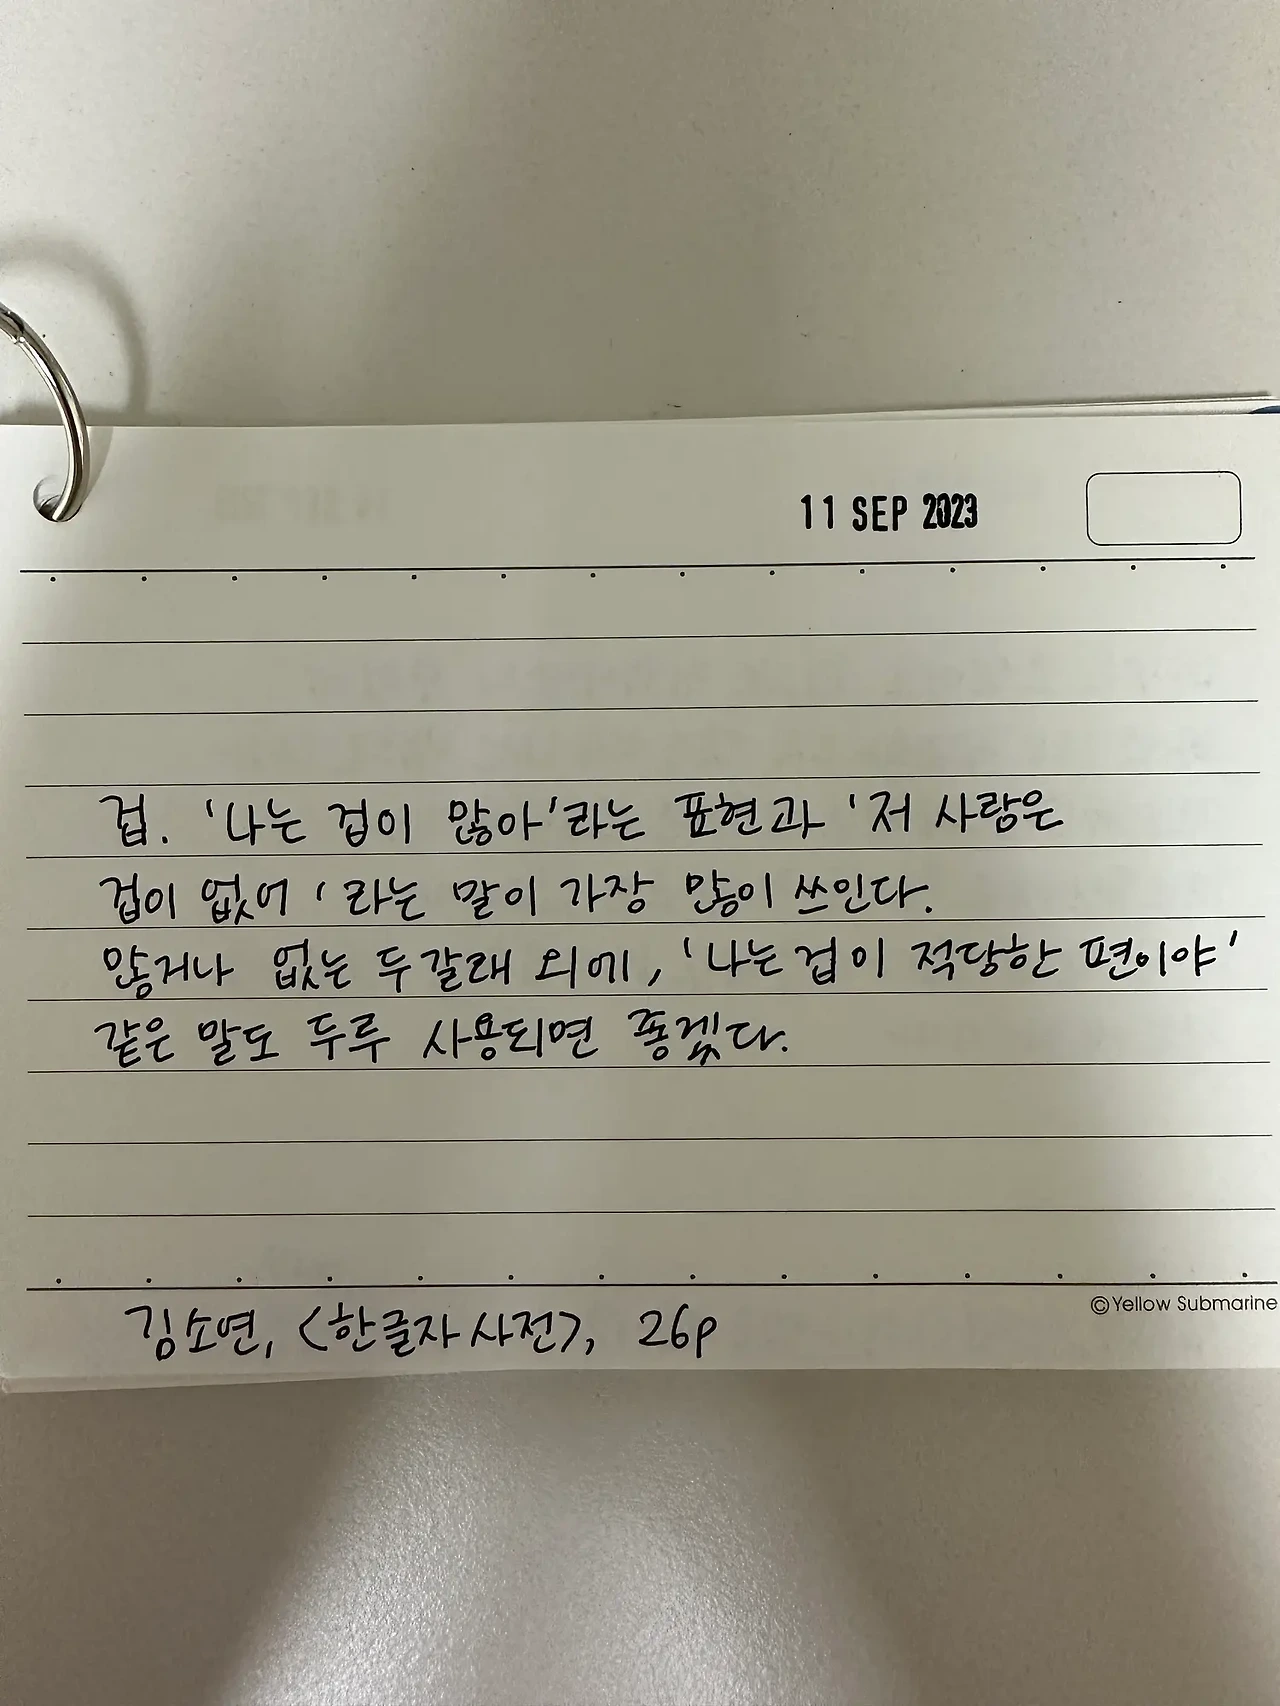 11 SEP 2023
겁. '나는 겁이 많아'라는 표현과 '저 사람은
겁이 없어'라는 말이 가장 많이 쓰인다.
많거나 없는 두갈래 외에, '나는 겁이 적당한 편이야'
같은 말도 두루 사용되면 좋겠다.
©Yellow Submarine
김소연, <한글자 사전>, 26p